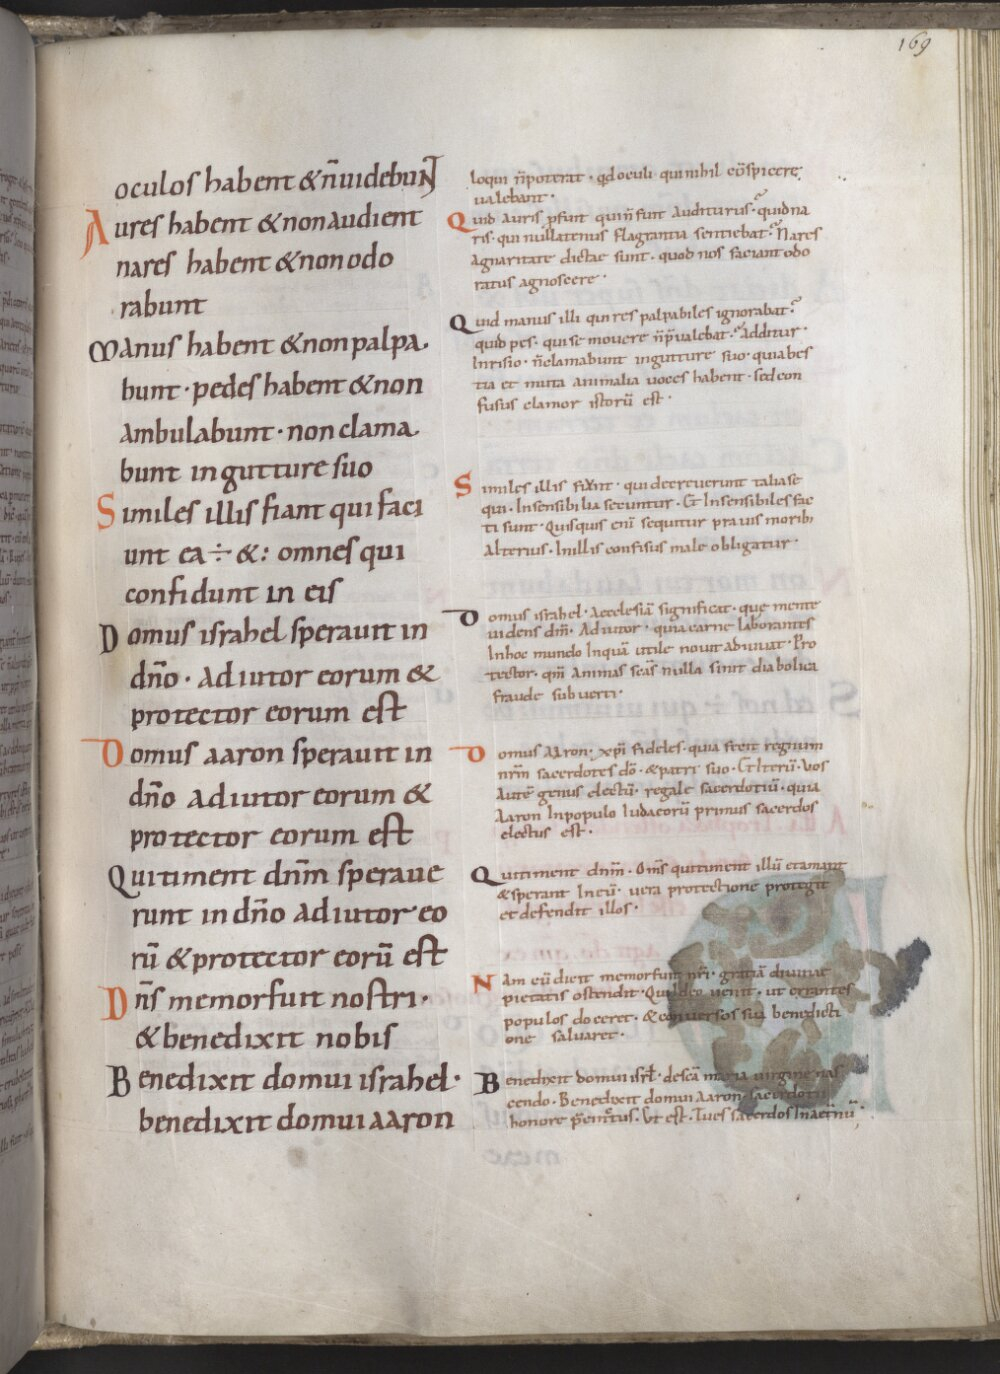 169
oculos habent & n̄ uidebunt
Aures habent & non audient
nares habent & non odo
rabunt
Manus habent & non palpa
bunt · pedes habent & non
ambulabunt · non clama
bunt in gutture suo
Similes illis fiant qui faci
unt ea ÷ &: omnes qui
confidunt in eis
Domus israhel sperauit in
dn̄o · adiutor eorum &
protector eorum est
Domus aaron sperauit in
dn̄o adiutor eorum &
protector eorum est
Qui timent dnm̄ speraue
runt in dn̄o adiutor eo
rū & protector eorū est
Dn̄s memor fuit nostri ·
& benedixit nobis
Benedixit domui israhel ·
benedixit domui aaron
loqui n̄ poterat · qd oculi qui nihil cōspicere
ualebant ·
Quid auris p̄sunt qui n̄ sunt auditurus · quid na
ris · qui nullatenus flagrantia sentiebat · Nares
agnaritate dictae sunt · quod nos faciant odo
ratus agnoscere ·
Quid manus illi qui res palpabiles ignorabat
quid pes · qui se mouere n̄ p̄ualebat · Additur
Inrisio · n̄ clamabunt in gutture suo · quia bes
tia et muta animalia uoces habent · sed con
fusus clamor istorū est ·
Similes illis fix̄nt · qui decreuerunt talia se
qui · Insensibilia secuntur · Et Insensibiles fac
ti sunt · Quisquis enī sequitur prauis morib;
alterius · In illis confisus male obligatur ·
Domus israhel · Aecclesiā significat · que mente
uidens dm̄ · Adiutor · quia carne laborantes
In hoc mundo In quā utile nouit adiuuat · Pro
tector · qm̄ Animas sc̄as nulla sinit diabolica
fraude subuerti ·
Domus Aaron · xp̄i fideles · quia fecit regnum
nrm̄ sacerdotes dō · & patri suo · Et Iterū · Vos
autē genus electū · regale sacerdotiū · quia
Aaron In populo Iudaeorū primus sacerdos
electus est ·
Qui timent dnm̄ · Om̄s qui timent illū etamant
& sperant In eū · uera protectione protegit
et defendit illos ·
Nam cū dicit memor fuit nr̄i · gratiā diuinae
pietatis ostendit · Qui deo uenit · ut errantes
populos doceret · & conuersos sua benedicti
one saluaret ·
Benedixit domui isrl̄ · de sc̄a maria uirgine nas
cendo · Benedixit domui Aaron · sacerdotii
honore · Vt est · Tu es sacerdos In aet̄nū